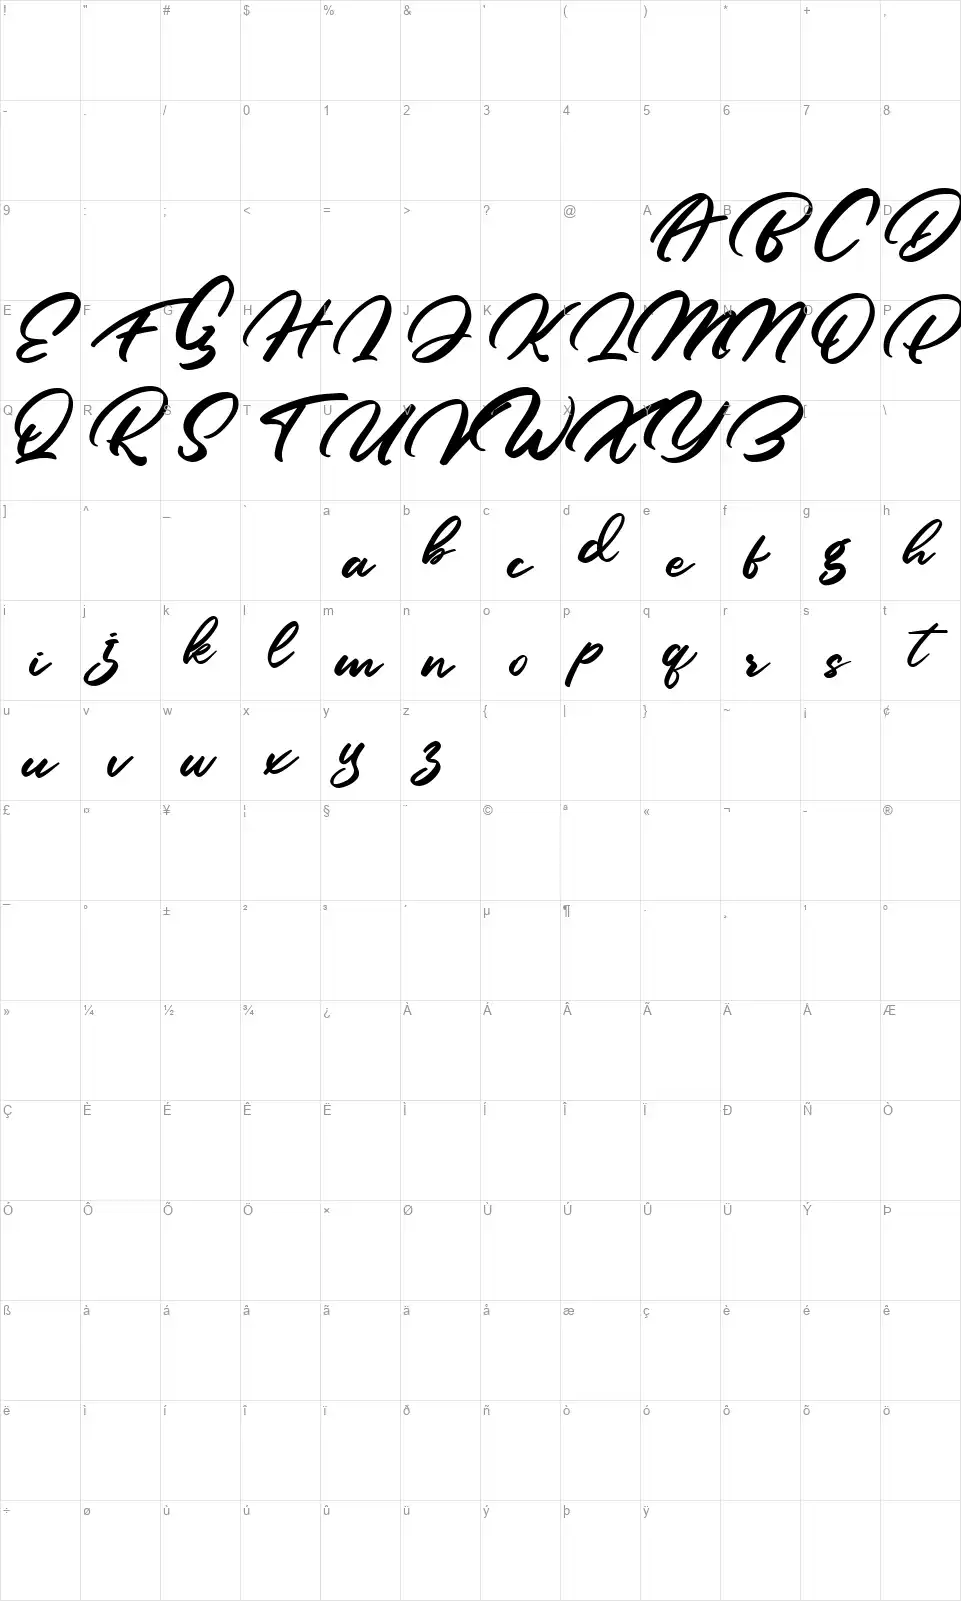 ! " # $ % & ' ( ) * + ,
- . / 0 1 2 3 4 5 6 7 8
9 : ; < = > ? @ A B C D
A B C D
E F G H I J K L M N O P
E F G H I J K L M N O P
Q R S T U V W X Y Z [ \
Q R S T U V W X Y Z
] ^ _ ` a b c d e f g h
a b c d e f g h
i j k l m n o p q r s t
i j k l m n o p q r s t
u v w x y z { | } ~ ¡ ¢
u v w x y z
£ ¤ ¥ ¦ § ¨ © ª « ¬ - ®
¯ ° ± ² ³ ´ µ ¶ · ¸ ¹ º
» ¼ ½ ¾ ¿ À Á Â Ã Ä Å Æ
Ç È É Ê Ë Ì Í Î Ï Ð Ñ Ò
Ó Ô Õ Ö × Ø Ù Ú Û Ü Ý Þ
ß à á â ã ä å æ ç è é ê
ë ì í î ï ð ñ ò ó ô õ ö
÷ ø ù ú û ü ý þ ÿ